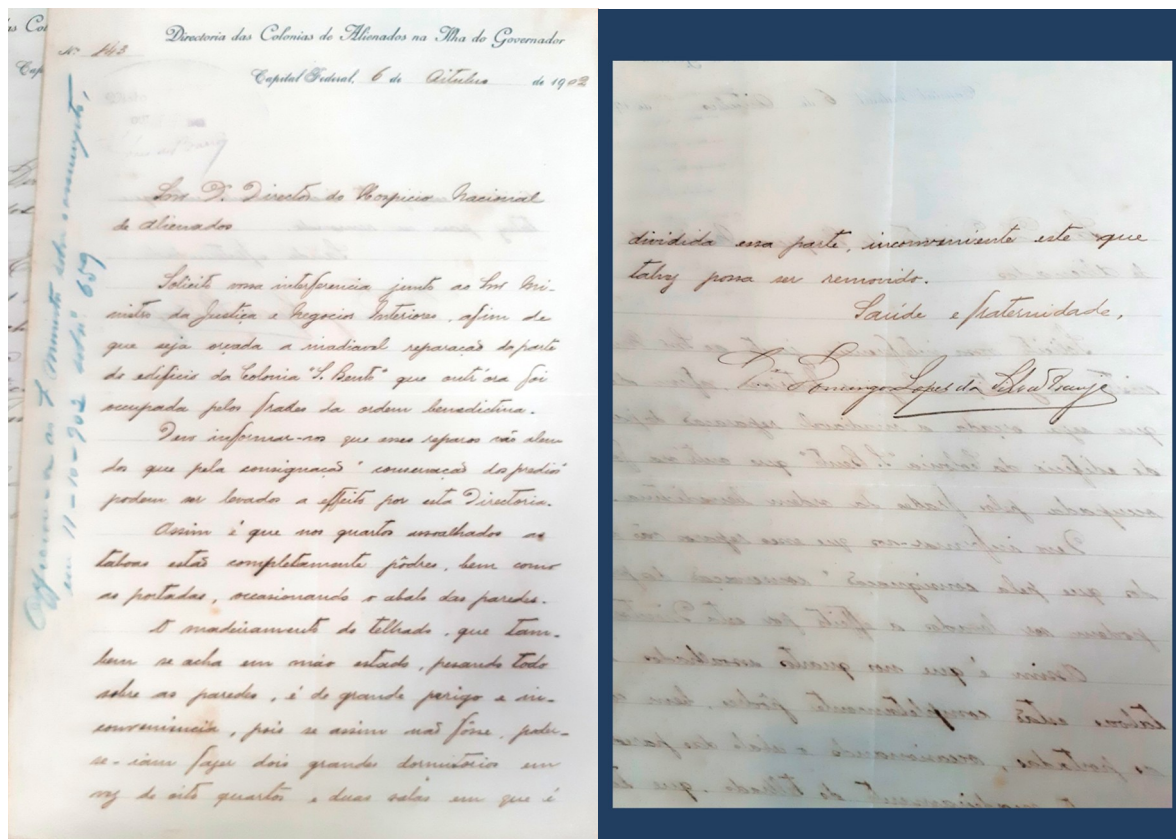 Directoria das Colonias de Alienados na Ilha do Governador
Nº 143
Capital Federal, 6 de Outubro de 1902
Officiou-se ao Ministro sobre o assumpto,
em 11-10-902 sob nº 659
Snr Dr. Director do Hospicio Nacional
de alienados
Solicito vossa interferencia junto ao Snr Mi-
nistro da Justiça e Negocios Interiores, afim de
que seja orçada a inadiavel reparação da parte
do edificio da Colonia "S. Bento" que outr'ora foi
occupada pelos frades da ordem benedictina.
Devo informar-vos que esses reparos não alen-
dos que pela consignação "conservação dos predios"
podem ser levados a effeito por esta Directoria.
Assim é que nos quartos assoalhados as
taboas estão completamente pôdres, bem como
as portadas, occasionando o abalo das paredes.
O madeiramento do telhado, que tam-
bem se acha em máo estado, pesando todo
sobre as paredes, é de grande perigo e in-
conveniencia, pois se assim não fosse, pode-
se-iam fazer dois grandes dormitorios em
vez de oito quartos e duas salas em que é
dividida essa parte, inconveniente este que
talvez possa ser removido.
Saúde e fraternidade,
Dr. Domingos Lopes da Silva Araujo